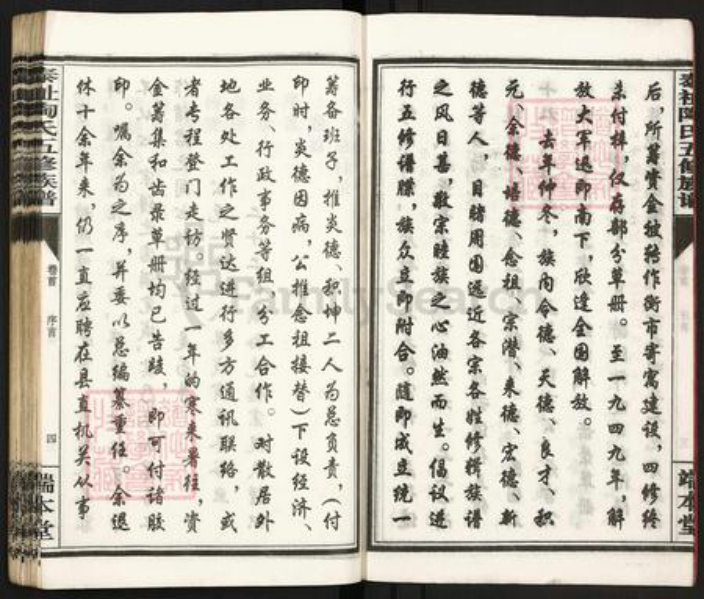 后，所筹资金被转作街市寄寓建设，四修终
未付梓，仅存部分草册。至一九四九年，解
放大军迅即南下，欣逢全国解放。
去年仲冬，族内令德、天德、良才、积
元、余德、培德、念祖、宗潜、来德、宏德、新
德等人，目睹周围远近各宗各姓修辑族谱
之风日甚，敬宗睦族之心油然而生。倡议进
行五修谱牒，族众立即附合。随即成立统一
筹备班子，推炎德、积坤二人为总负责，（付
印时，炎德因病，公推念祖接替）下设经济、
业务、行政事务等组，分工合作。对散居外
地各处工作之贤达进行多方通讯联络，或
者专程登门走访。经过一年的寒来暑往，资
金筹集和齿录草册均已告竣，即可付诸胶
印。嘱余为之序，并委以总编纂重任。余退
休十余年来，仍一直应聘在县直机关从事
陶氏五修族谱
卷首 序言
四
端本堂
端本堂
FamilySearch